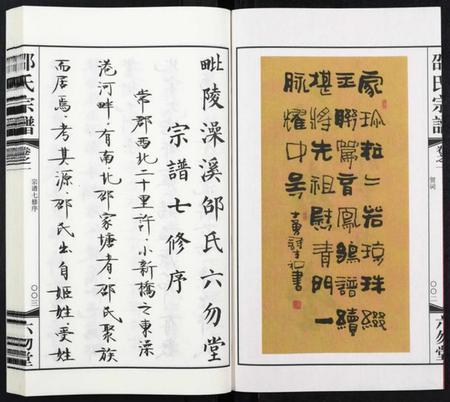 邵氏宗譜
卷之一
賀詞
〇〇二
六勿堂
家珍粒二若瓊珠綴
玉聯篇育鳳雛譜續
堪將先祖慰青門一
脉耀中吳
毗陵澡溪邵氏六勿堂
宗譜七修序
常郡西北二十里許小新橋之東澡
港河畔有南北邵家塘者邵氏聚族
而居焉考其源邵氏出自姬姓受姓
邵氏宗譜
卷之一
宗譜七修序
〇〇三
六勿堂